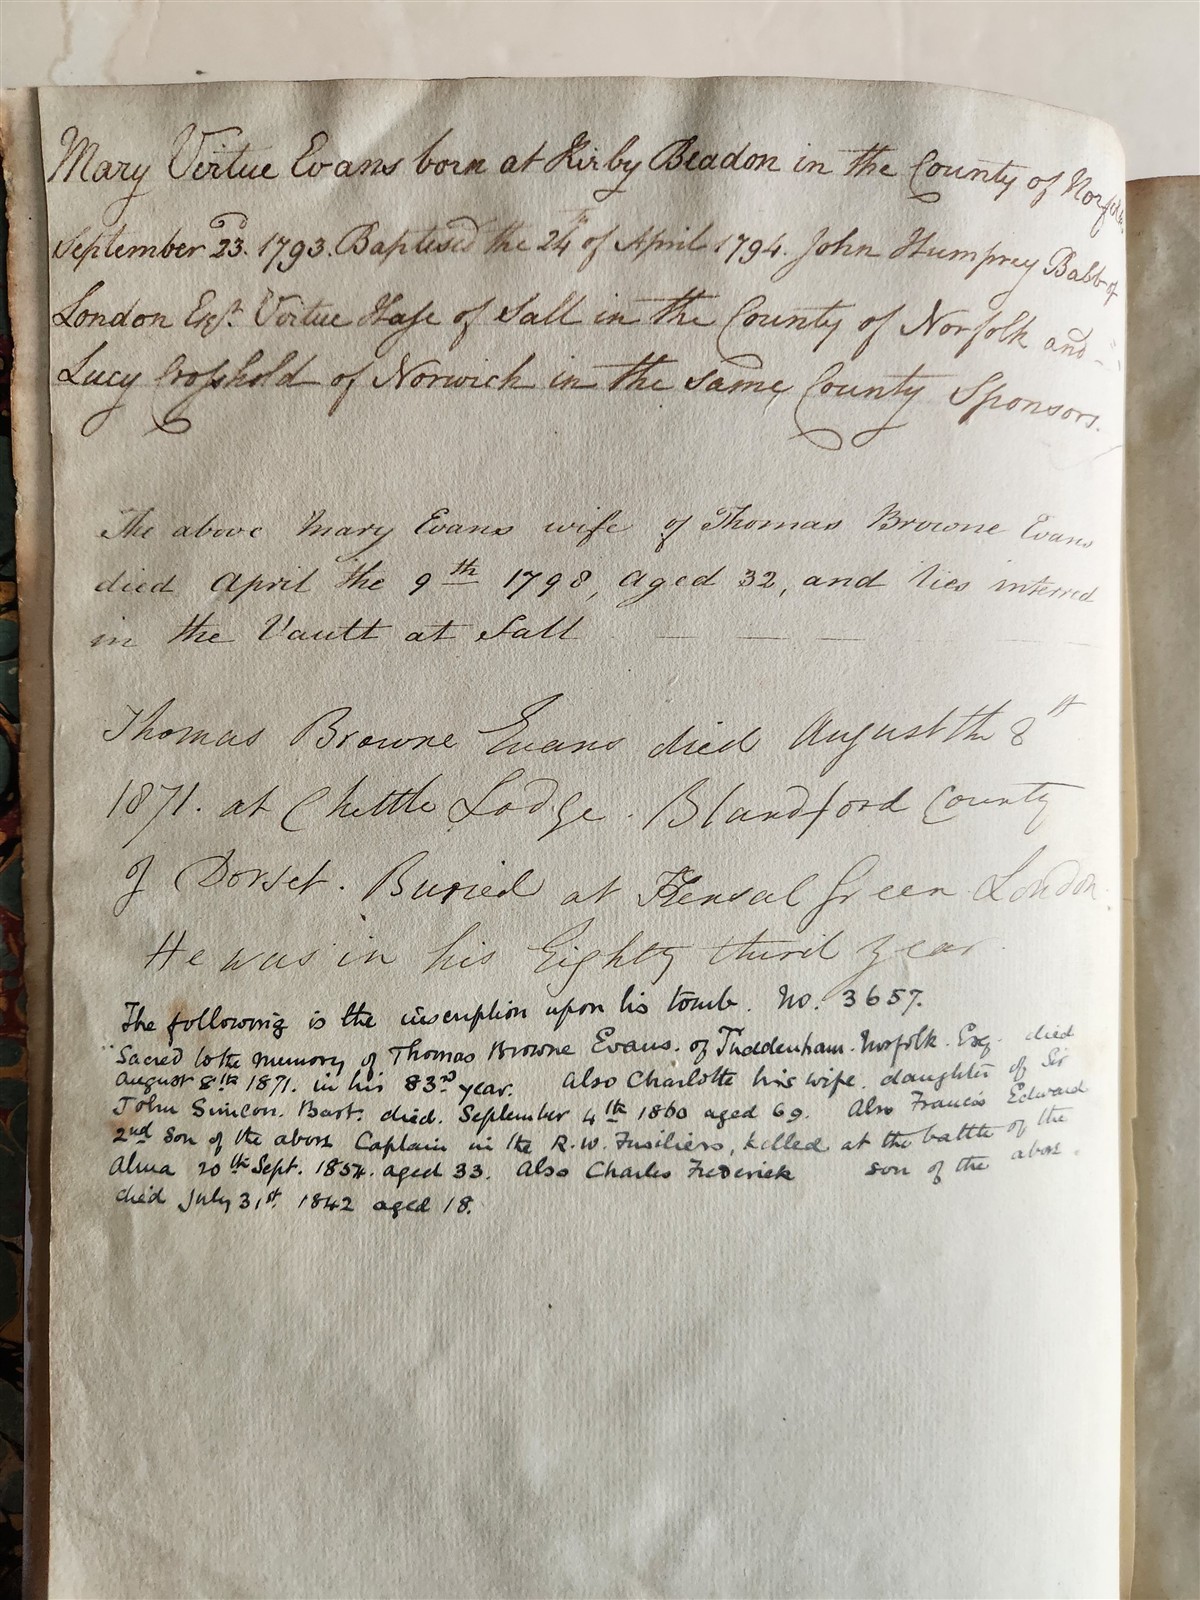 Mary Virtue Evans born at Kirby Beadon in the County of Norfolk
September 23d. 1793. Baptised the 24th of April 1794. John Humprey Babb of
London Esqr. Virtue Hase of Sall in the County of Norfolk and
Lucy Crosshold of Norwich in the same County Sponsors.
The above Mary Evans wife of Thomas Browne Evans
died April the 9th 1798, aged 32, and lies interred
in the Vault at Sall
Thomas Browne Evans died August the 8th
1871. at Chettle Lodge. Blandford County
of Dorset. Buried at Kensal Green London.
He was in his Eighty third year.
The following is the inscription upon his tomb. No. 3657.
"Sacred to the memory of Thomas Browne Evans. of Tuddenham. Norfolk. Esq. died
August 8th 1871. in his 83rd year. Also Charlotte his wife. daughter of Sir
John Simeon. Bart. died. September 4th 1860 aged 69. Also Francis Edward
2nd son of the above Captain in the R. W. Fusiliers, killed at the battle of the
Alma 20th Sept. 1854. aged 33. Also Charles Frederick son of the above.
died July 31st. 1842 aged 18.